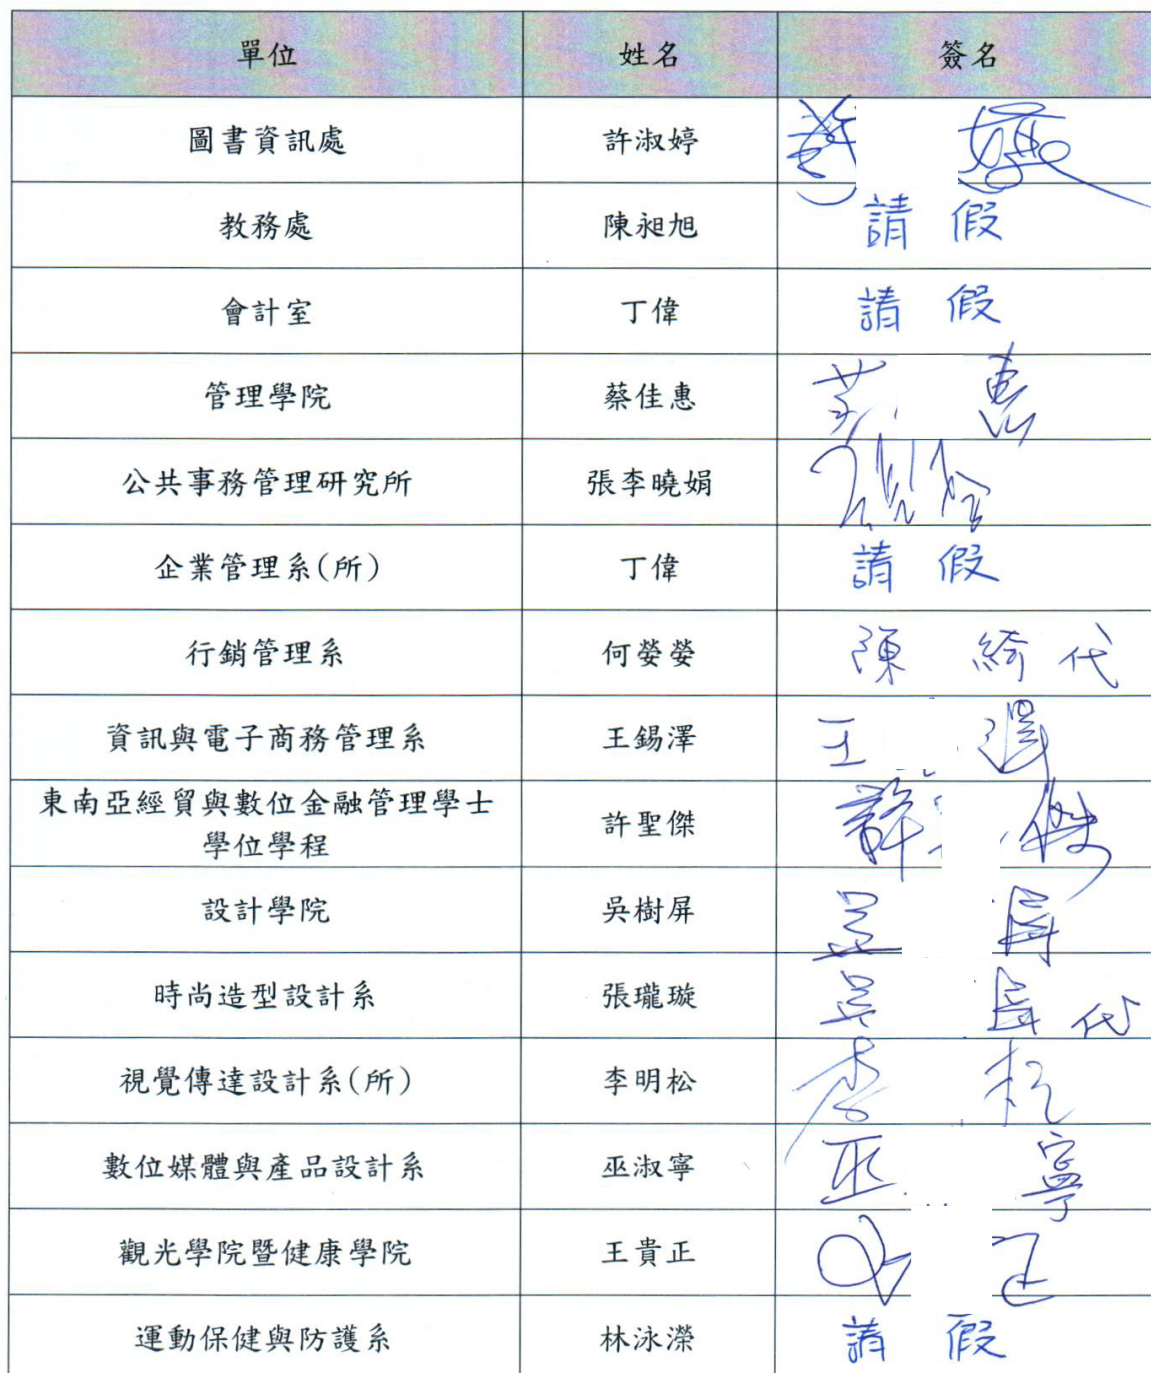 單位 姓名 簽名
圖書資訊處 許淑婷 許
教務處 陳昶旭 請假
會計室 丁偉 請假
管理學院 蔡佳惠 蔡 惠
公共事務管理研究所 張李曉娟
企業管理系(所) 丁偉 請假
行銷管理系 何嫈嫈 陳 綺代
資訊與電子商務管理系 王錫澤 王 澤
東南亞經貿與數位金融管理學士
學位學程 許聖傑 許 傑
設計學院 吳樹屏 吳 屏
時尚造型設計系 張瓏璇 吳 屏代
視覺傳達設計系(所) 李明松 李 松
數位媒體與產品設計系 巫淑寧 巫 寧
觀光學院暨健康學院 王貴正 正
運動保健與防護系 林泳瀠 請假